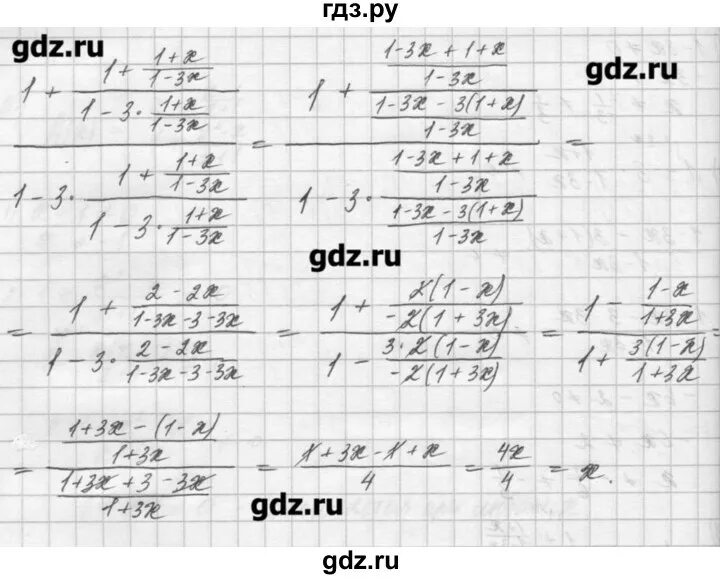 гдз.ру
gdz.ru
gdz.ru
\frac{1 + \frac{1 + \frac{1+x}{1-3x}}{1 - 3 \cdot \frac{1+x}{1-3x}}}{1 - 3 \cdot \frac{1 + \frac{1+x}{1-3x}}{1 - 3 \cdot \frac{1+x}{1-3x}}} = \frac{1 + \frac{\frac{1-3x+1+x}{1-3x}}{\frac{1-3x-3(1+x)}{1-3x}}}{1 - 3 \cdot \frac{\frac{1-3x+1+x}{1-3x}}{\frac{1-3x-3(1+x)}{1-3x}}} =
gdz.ru
= \frac{1 + \frac{2-2x}{1-3x-3-3x}}{1 - 3 \cdot \frac{2-2x}{1-3x-3-3x}} = \frac{1 + \frac{2(1-x)}{-2(1+3x)}}{1 - \frac{3 \cdot 2(1-x)}{-2(1+3x)}} = \frac{1 - \frac{1-x}{1+3x}}{1 + \frac{3(1-x)}{1+3x}} =
= \frac{\frac{1+3x-(1-x)}{1+3x}}{\frac{1+3x+3-3x}{1+3x}} = \frac{1+3x-1+x}{4} = \frac{4x}{4} = x.
gdz.ru
gdz.ru